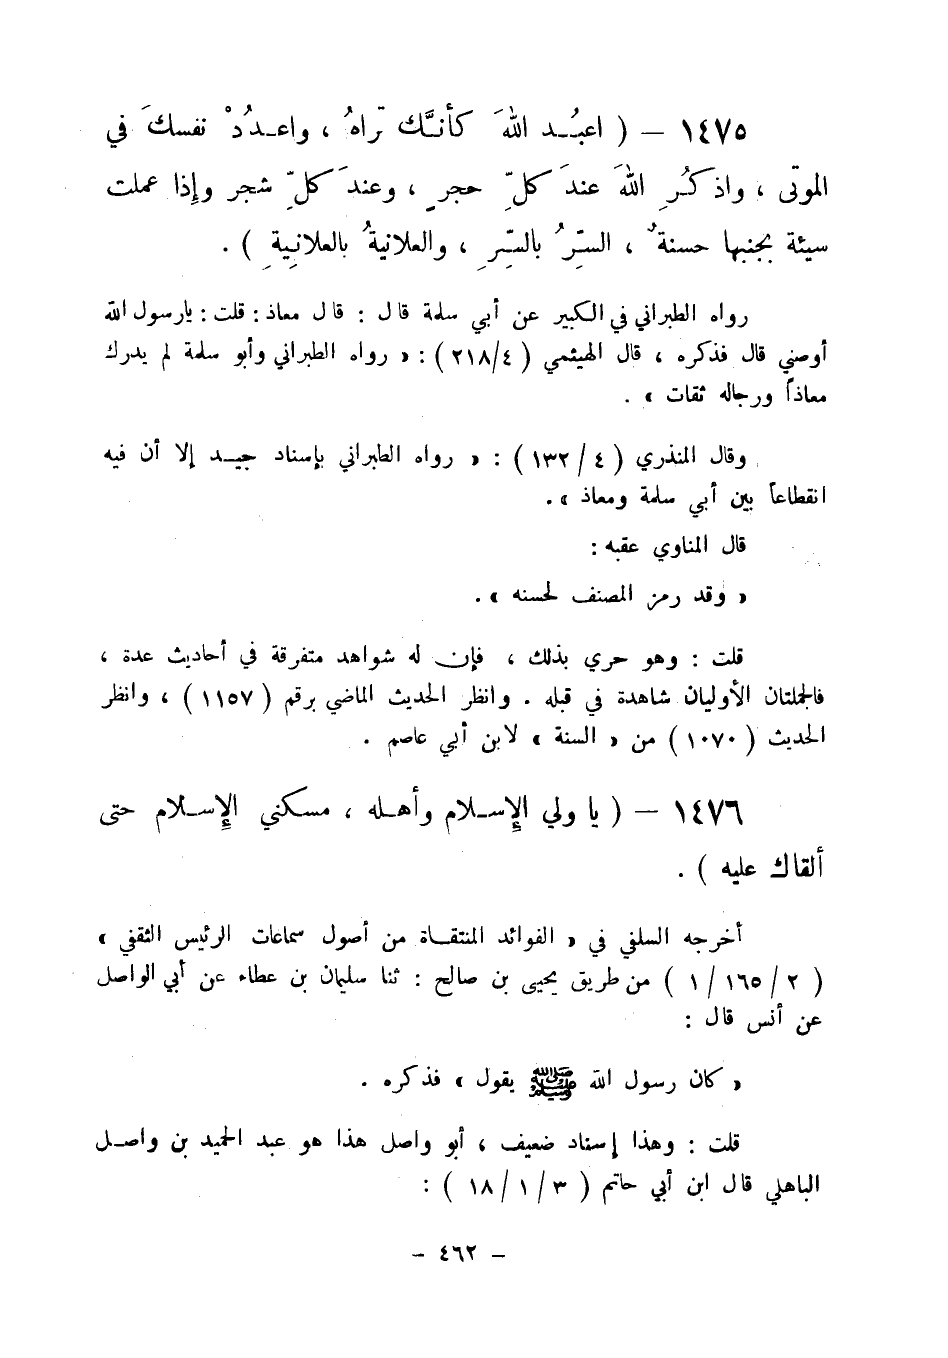 ١٤٧٥ – ( اعبُـد اللهَ كأنَّك تَراهُ ، واعـدُدْ نفسكَ في
الموتى ، واذكُرِ اللهَ عندَ كلِّ حجرٍ ، وعندَ كلِّ شجر وإذا عملت
سيئة بجنبها حسنةٌ ، السِّرُ بالسِّرِ ، والعلانيةُ بالعلانِيةِ ) .
رواه الطبراني في الكبير عن أبي سلمة قال : قال معاذ : قلت : يارسول الله
أوصني قال فذكره ، قال الهيثمي ( ٢١٨/٤ ) : « رواه الطبراني وأبو سلمة لم يدرك
معاذاً ورجاله ثقات » .
وقال المنذري ( ٤ / ١٣٢ ) : « رواه الطبراني بإسناد جيـد إلا أن فيه
انقطاعاً بين أبي سلمة ومعاذ » .
قال المناوي عقبه :
« وقد رمز المصنف لحسنه » .
قلت : وهو حري بذلك ، فإن له شواهد متفرقة في أحاديث عدة ،
فالجملتان الأوليان شاهدة في قبله . وانظر الحديث الماضي برقم ( ١١٥٧ ) ، وانظر
الحديث ( ١٠٧٠ ) من « السنة » لابن أبي عاصم .
١٤٧٦ – ( يا ولي الإسـلام وأهـله ، مسكني الإسـلام حتى
ألقاك عليه ) .
أخرجه السلفي في « الفوائد المنتقـاة من أصول سماعات الرئيس الثقفي »
( ٢ / ١٦٥ / ١ ) من طريق يحيى بن صالح : ثنا سليمان بن عطاء عن أبي الواصل
عن أنس قال :
« كان رسول الله ﷺ يقول » فذكره .
قلت : وهذا إسناد ضعيف ، أبو واصل هذا هو عبد الحميد بن واصـل
الباهلي قال ابن أبي حاتم ( ٣ / ١ / ١٨ ) :
– ٤٦٢ –